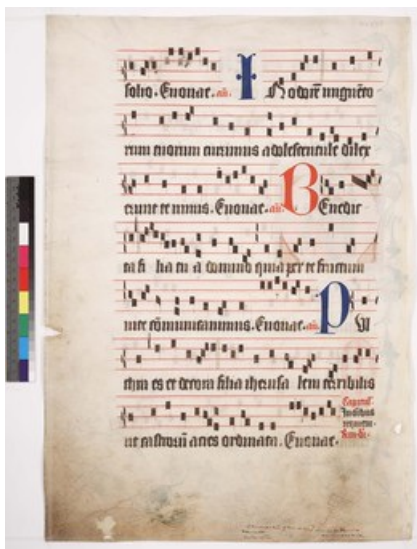 solio. Euouae. añ. In odorē unguēto
rum tuorum currimus adolescentule dilex
erunt te nimis. Euouae. añ. Benedic
ta fi lia tu a domino quia per te fructum
vite cōmunicauimus. Euouae. añ. Pul
chra es et decora filia iherusa lem terribilis
ut castrorū acies ordinata. Euouae.